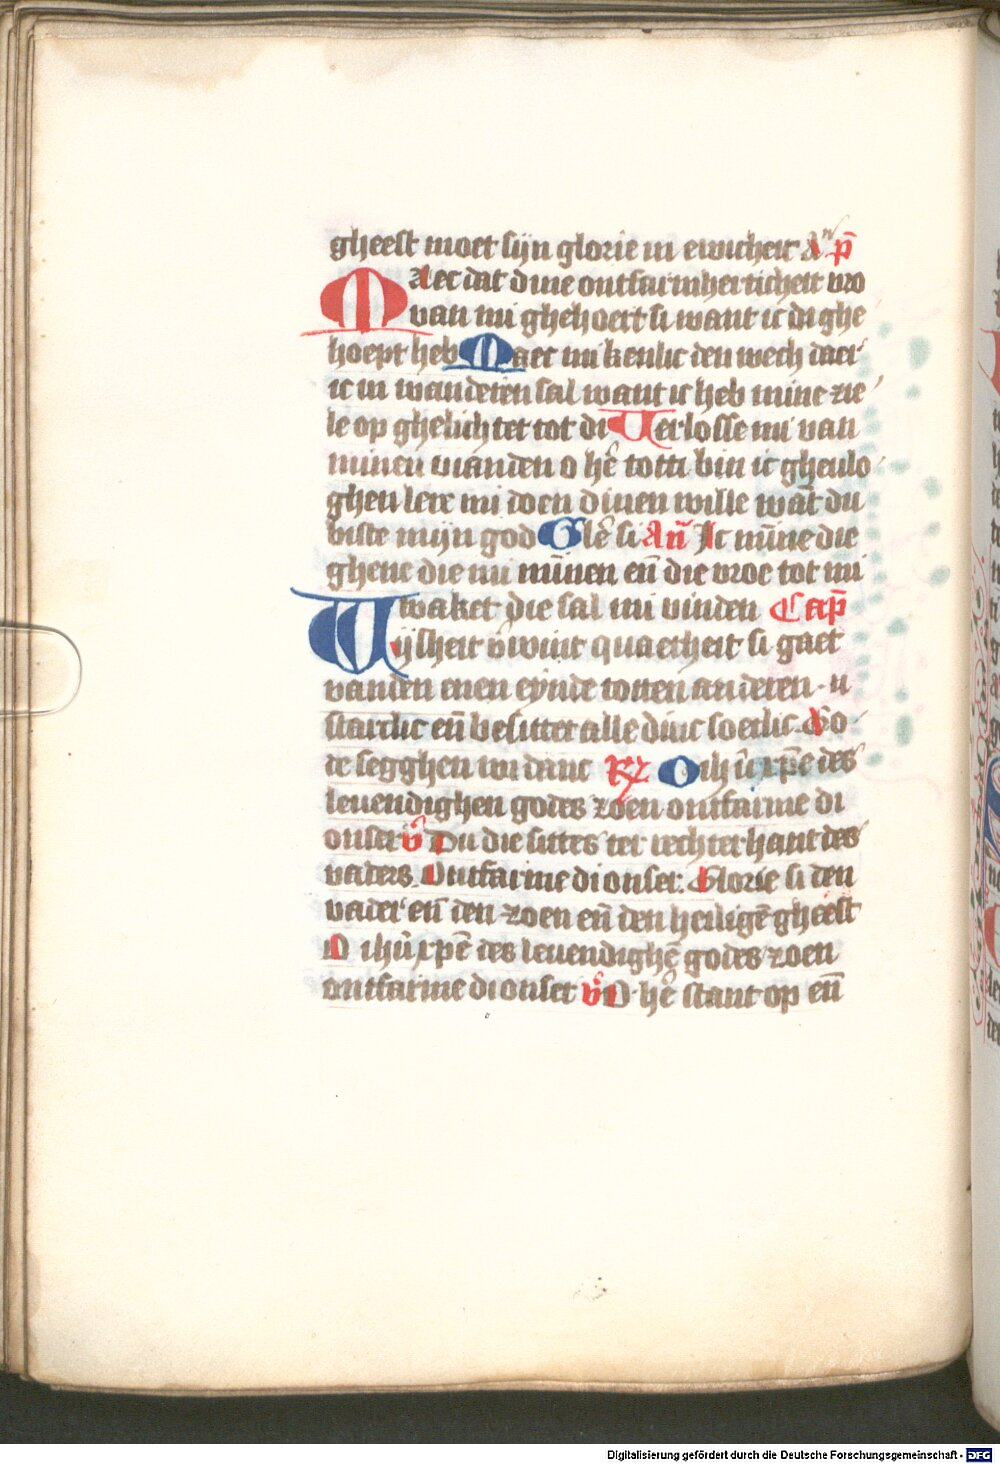 gheest moet sijn glorie in ewicheit Aⁿ p̄
Maec dat dine ontfarmherticheit vro
van mi ghehoert si want ic di ghe
hoept heb Maec mi kenlic den wech daer
ic in wanderen sal want ic heb mine zie
le op ghelichtet tot di Verlosse mi van
minen vianden o hē totti bin ic ghevlo
ghen lere mi doen dinen wille wāt du
biste mijn god Glē si An̄ Ic mīne die
ghene die mi mīnen en̄ die vroe tot mi
waket die sal mi vinden Cap̄
Wijsheit v̄wint quaetheit si gaet
vanden enen eynde totten anderen
starclic en̄ besittet alle dinc soetlic Go
de segghen wi danc R O ihū xp̄e des
levendighen godes zoen ontfarme di
onser v̄ Du die sittes ter rechterhant des
vaders Ontfarme di onser. Glorie si den
vader en̄ den zoen en̄ den heiligē gheest
O ihū xpē des levendighē godes zoen
ontfarme di onser v̄ O hē stant op en̄
Digitalisierung gefördert durch die Deutsche Forschungsgemeinschaft - DFG